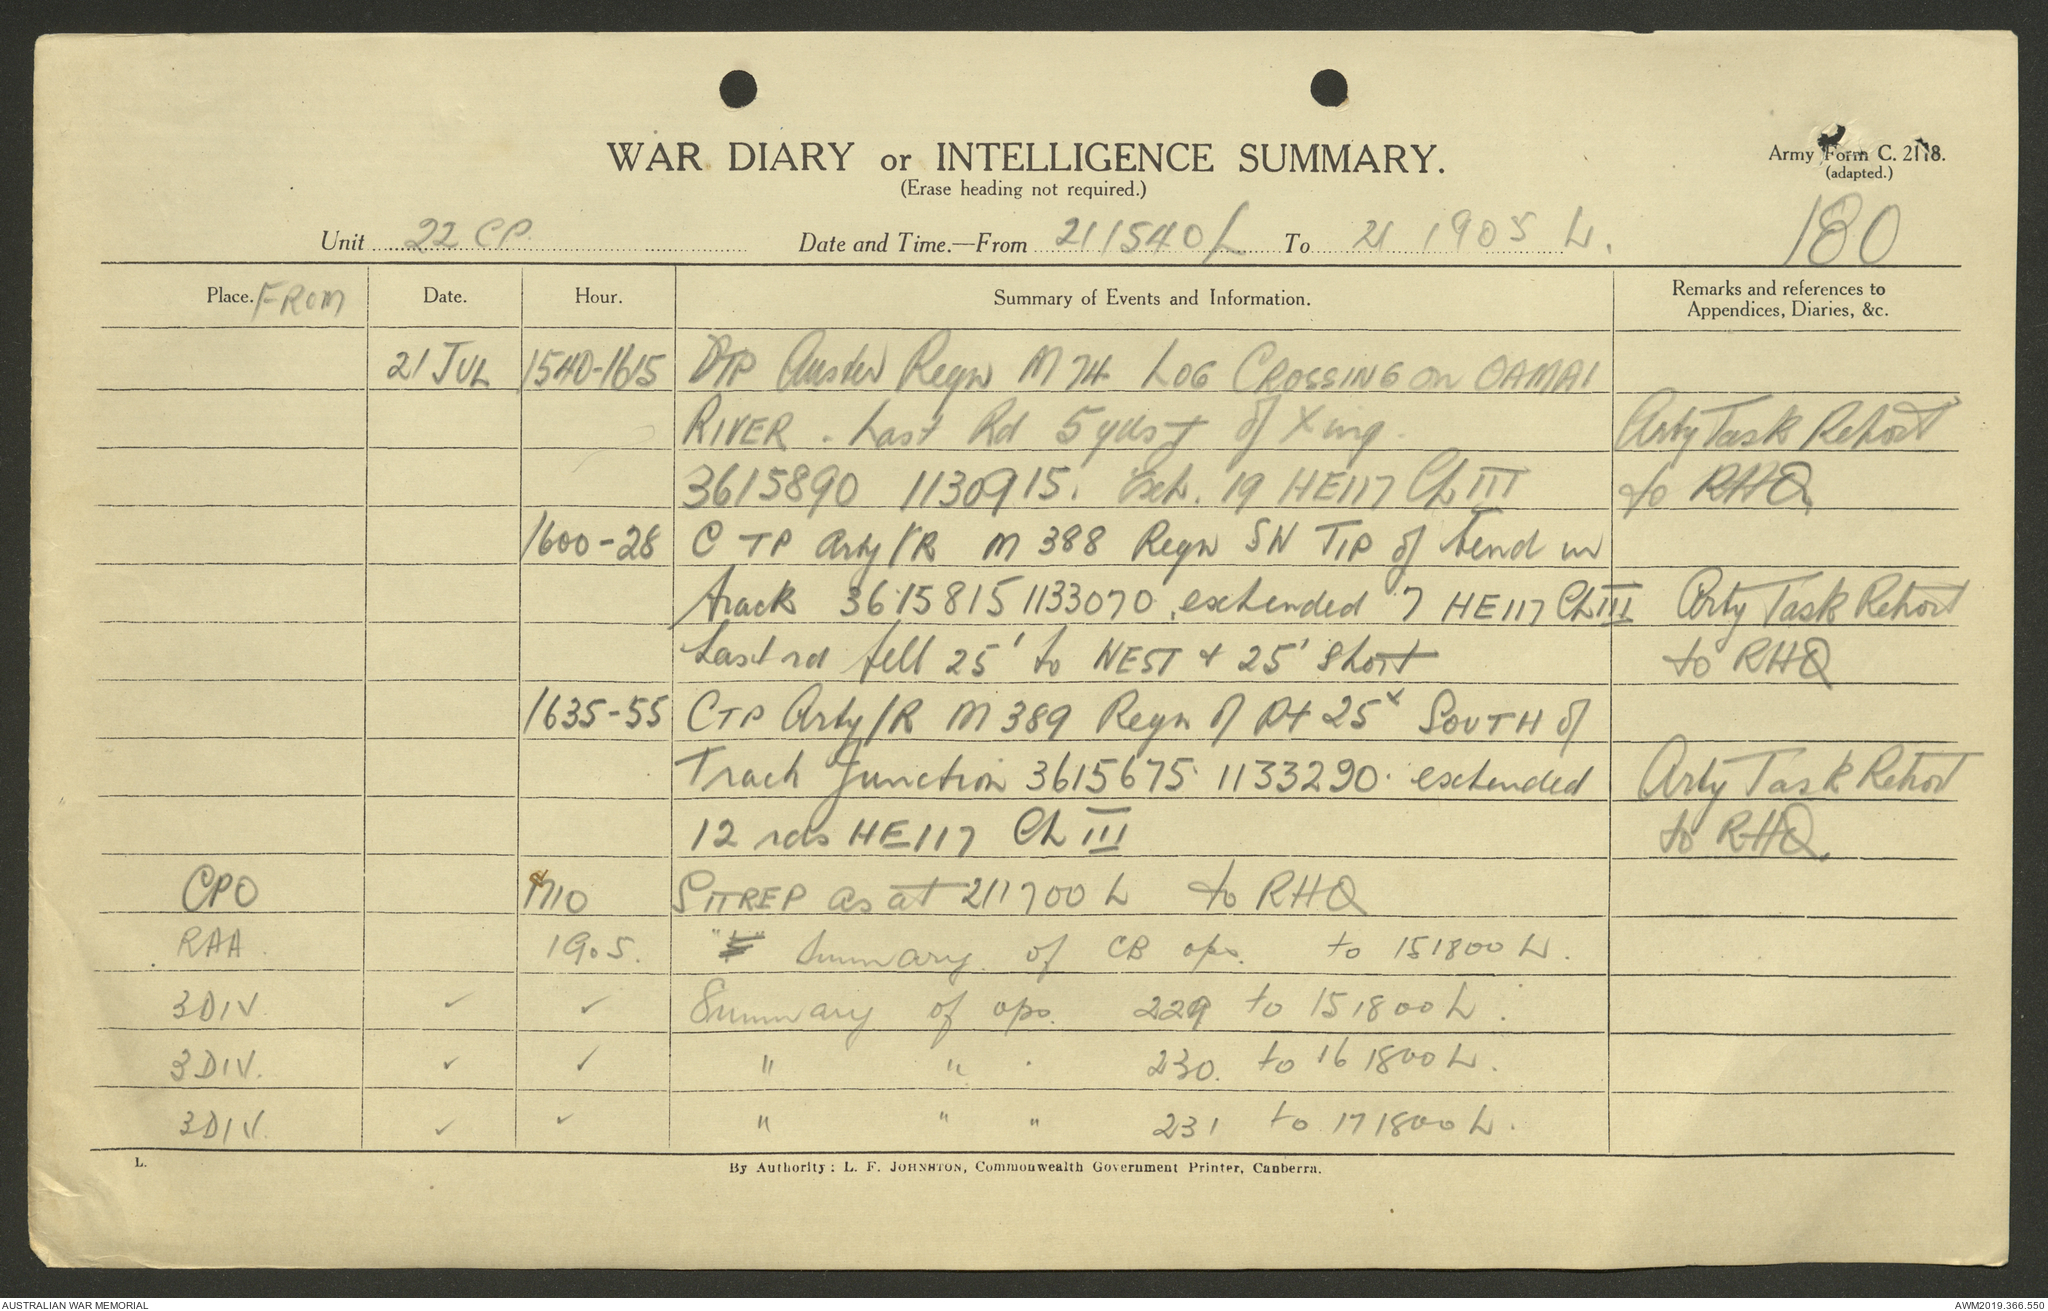 WAR DIARY or INTELLIGENCE SUMMARY.
(Erase heading not required.)
Army Form C. 2118.
(adapted.)
180
Unit 22 CP. Date and Time.—From 211540L To 21 1905 L.
Place. FROM Date. Hour. Summary of Events and Information. Remarks and references to Appendices, Diaries, &c.
21 JUL 1540-1615 DTP Auster Regn M 74 LOG CROSSING on OAMAI
RIVER. Last Rd 5 yds of Xing. Arty Task Report
3615890 1130915. Exh. 19 HE117 Ch III to RHQ
1600-28 C TP Arty/R M 388 Regn SN TIP of bend in
track 3615815 1133070. exhended 7 HE117 Ch III Arty Task Report
Last rd fell 25' to NEST + 25' short to RHQ
1635-55 CTP Arty/R M 389 Regn of Pt 25x SOUTH of
Track Junction 3615675 1133290. exhended Arty Task Report
12 rds HE117 Ch III to RHQ.
CPO 1710 SITREP as at 211700 L to RHQ
RAA. 1905. Summary of CB ops. to 151800 L.
3DIV ✓ ✓ Summary of ops. 229 to 151800 L.
3DIV. ✓ ✓ " " . 230. to 161800 L.
3DIV. ✓ ✓ " " " 231 to 171800 L.
L.
By Authority: L. F. JOHNSTON, Commonwealth Government Printer, Canberra.
AUSTRALIAN WAR MEMORIAL
AWM2019.366.550